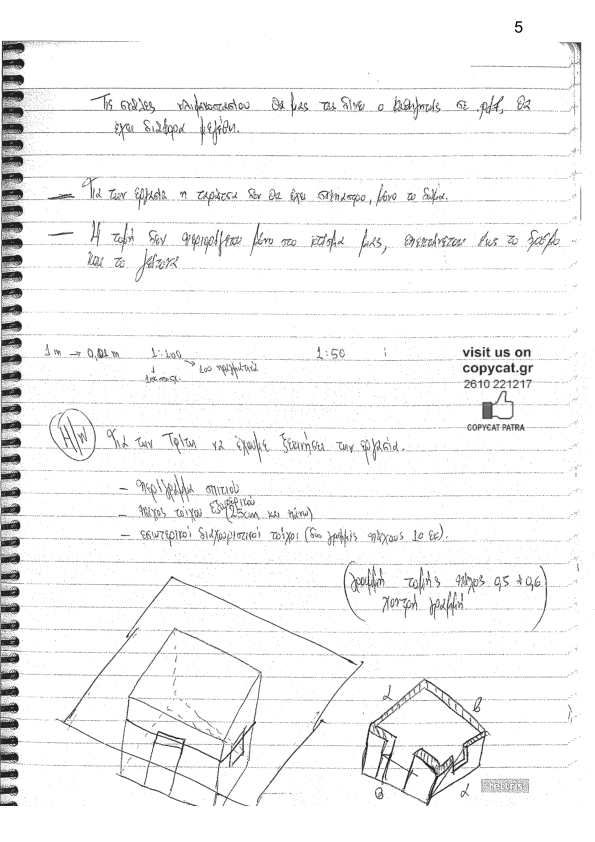 5
Τις σκάλες κλιμακοστασίου θα μας τις δίνει ο καθηγητής σε pdf, θα
έχει διάφορα μεγέθη.
— Για την εργασία η ταράτσα δεν θα έχει στηθαίο, μόνο το δώμα.
— Η τομή δεν περιορίζεται μόνο στο κτίσμα μας, επεκτείνεται έως το δρόμο
και το γείτονα
1m → 0,01m 1:100 → 100 πραγματικά 1:50
visit us on
copycat.gr
2610 221217
COPYCAT PATRA
H/W Για την Τρίτη να έχουμε ξεκινήσει την εργασία.
— περίγραμμα σπιτιού
— πάχος τοίχου εξωτερικού (25cm και πάνω)
— εσωτερικοί διαχωριστικοί τοίχοι (δυο γραμμές πάχους 10 εκ).
(γραμμή τομής πάχος 0,5 ή 0,6
χοντρή γραμμή)